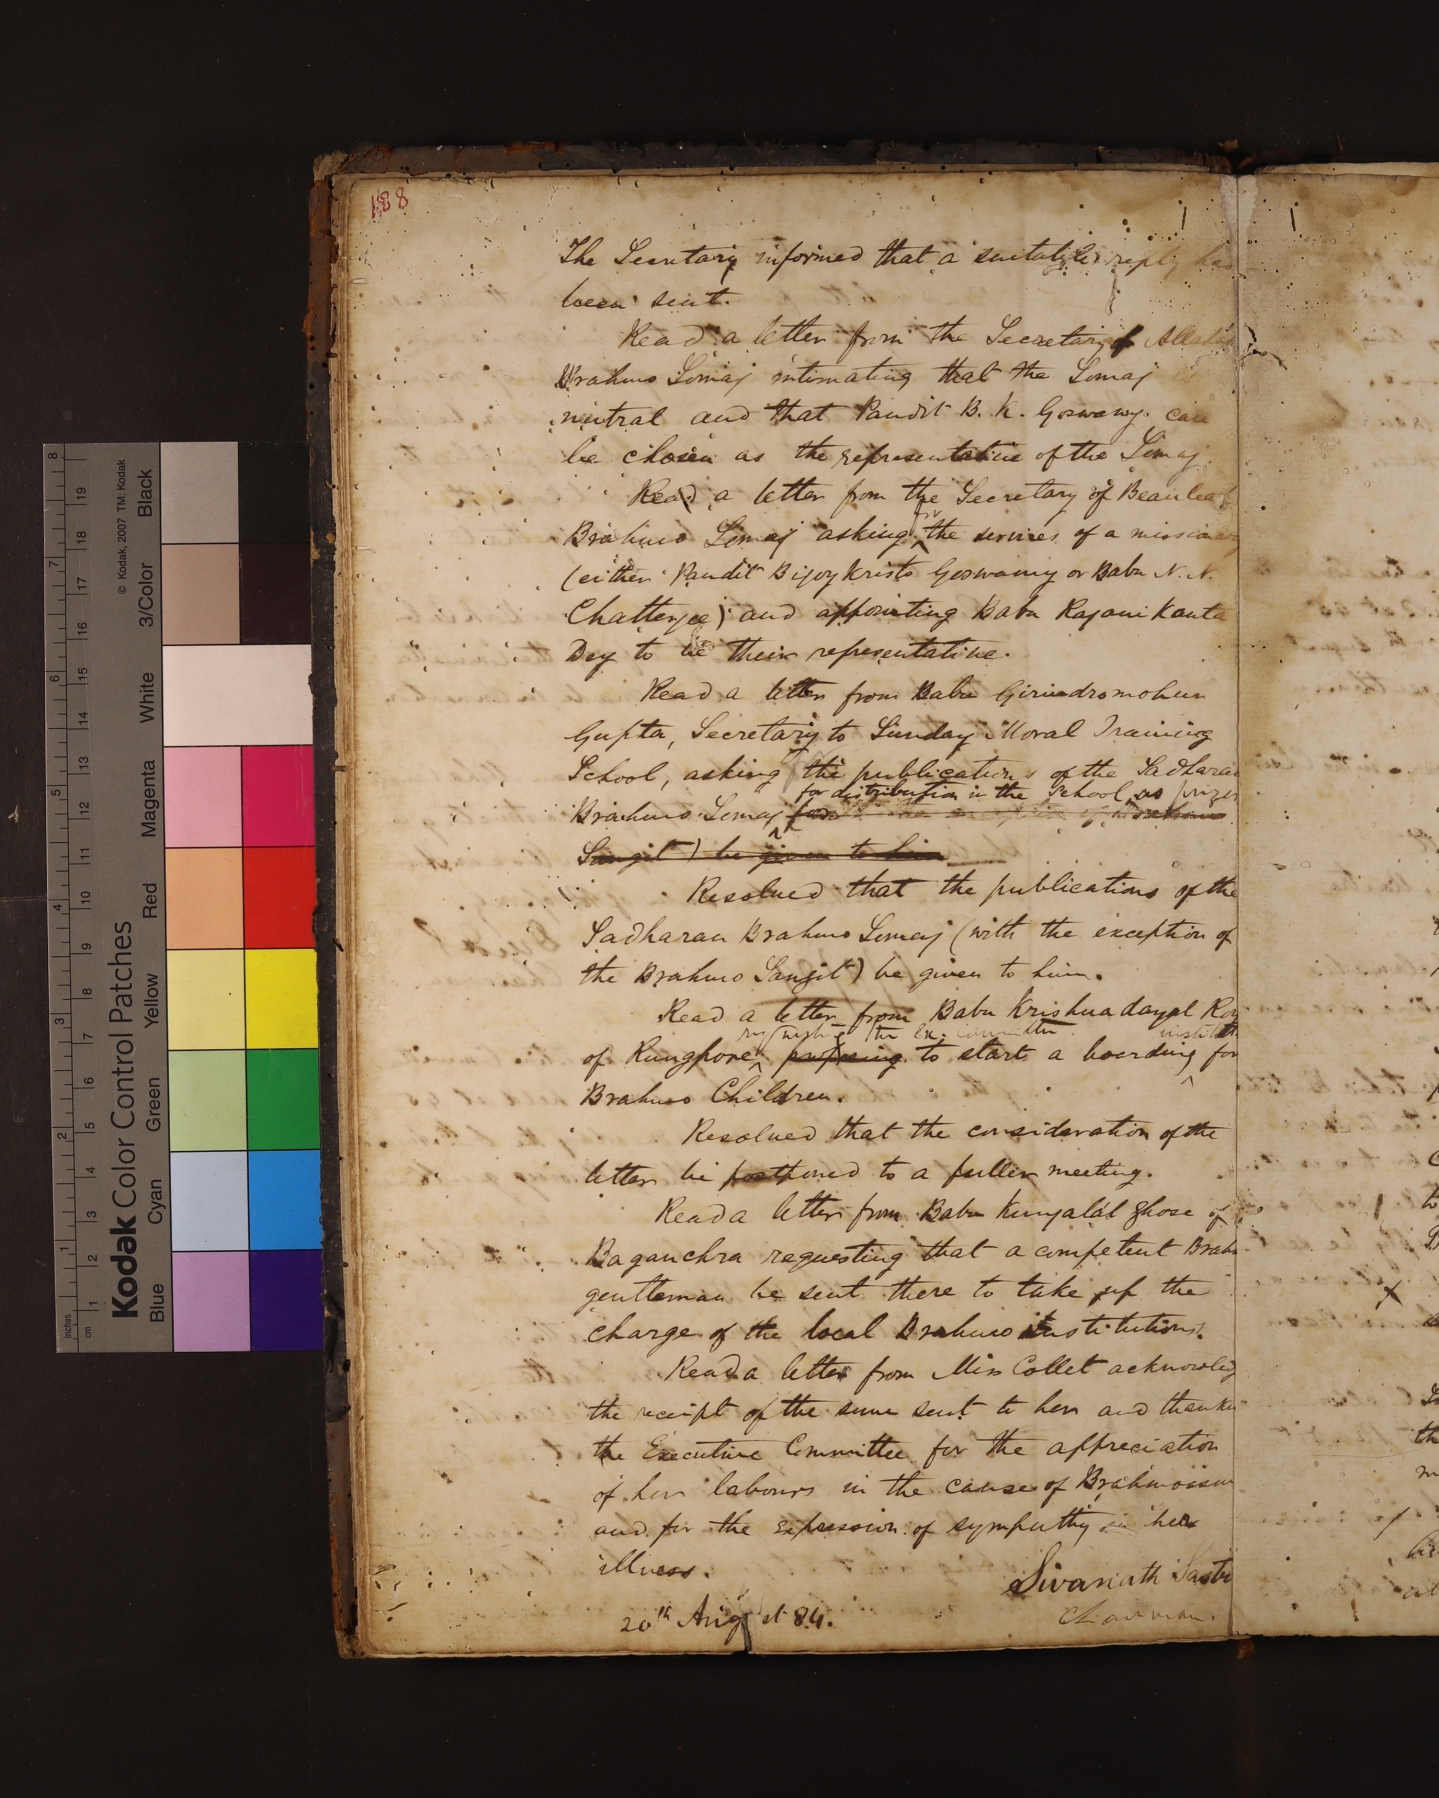 188
The Secretary informed that a suitable reply has
been sent.
Read a letter from the Secretary of
Brahmo Somaj intimating that the Somaj is
nutral and that Pandit B. K. Goswamy can
be chosen as the representative of the Somaj
Read a letter from the Secretary of Beauleah
for
Brahmo Somaj asking ^ the services of a missionary
(either Pandit Bijoy Kristo Goswamy or Babu N. N.
Chatterjee) and appointing Babu Rajani Kanta
Dey to be their representative.
Read a letter from Babu Girindromohun
Gupta, Secretary to Sunday Moral Training
School, asking the publications of the Sadharan
for distribution in the School as prizes
Brahmo Somaj ^ the exception of Brahmo
Sangit) be given to him
Resolved that the publications of the
Sadharan Brahmo Somaj (with the exception of
the Brahmo Sangit) be given to him.
Read a letter from Babu Krishna dayal Roy
requesting the Ex. Committee
of Rungpore ^ proposing to start a boarding ^ for
Brahmo Children.
Resolved that the consideration of the
letter be postponed to a fuller meeting.
Read a letter from Babu Kunjalal Ghose of
Baganchra requesting that a competent Brahmo
gentleman be sent there to take up the
charge of the local Brahmo institutions.
Read a letter from Miss Collet acknowledg
the receipt of the sum sent to her and thanking
the Executive Committee for the appreciation
of her labours in the cause of Brahmoism
and for the expression of sympathy in her
illness.
Sivanath Sastri
Chairman.
20th August 84.
© Kodak, 2007 TM: Kodak
Kodak Color Control Patches
Blue Cyan Green Yellow Red Magenta White 3/Color Black
inches 1 2 3 4 5 6 7 8
cm 1 2 3 4 5 6 7 8 9 10 11 12 13 14 15 16 17 18 19